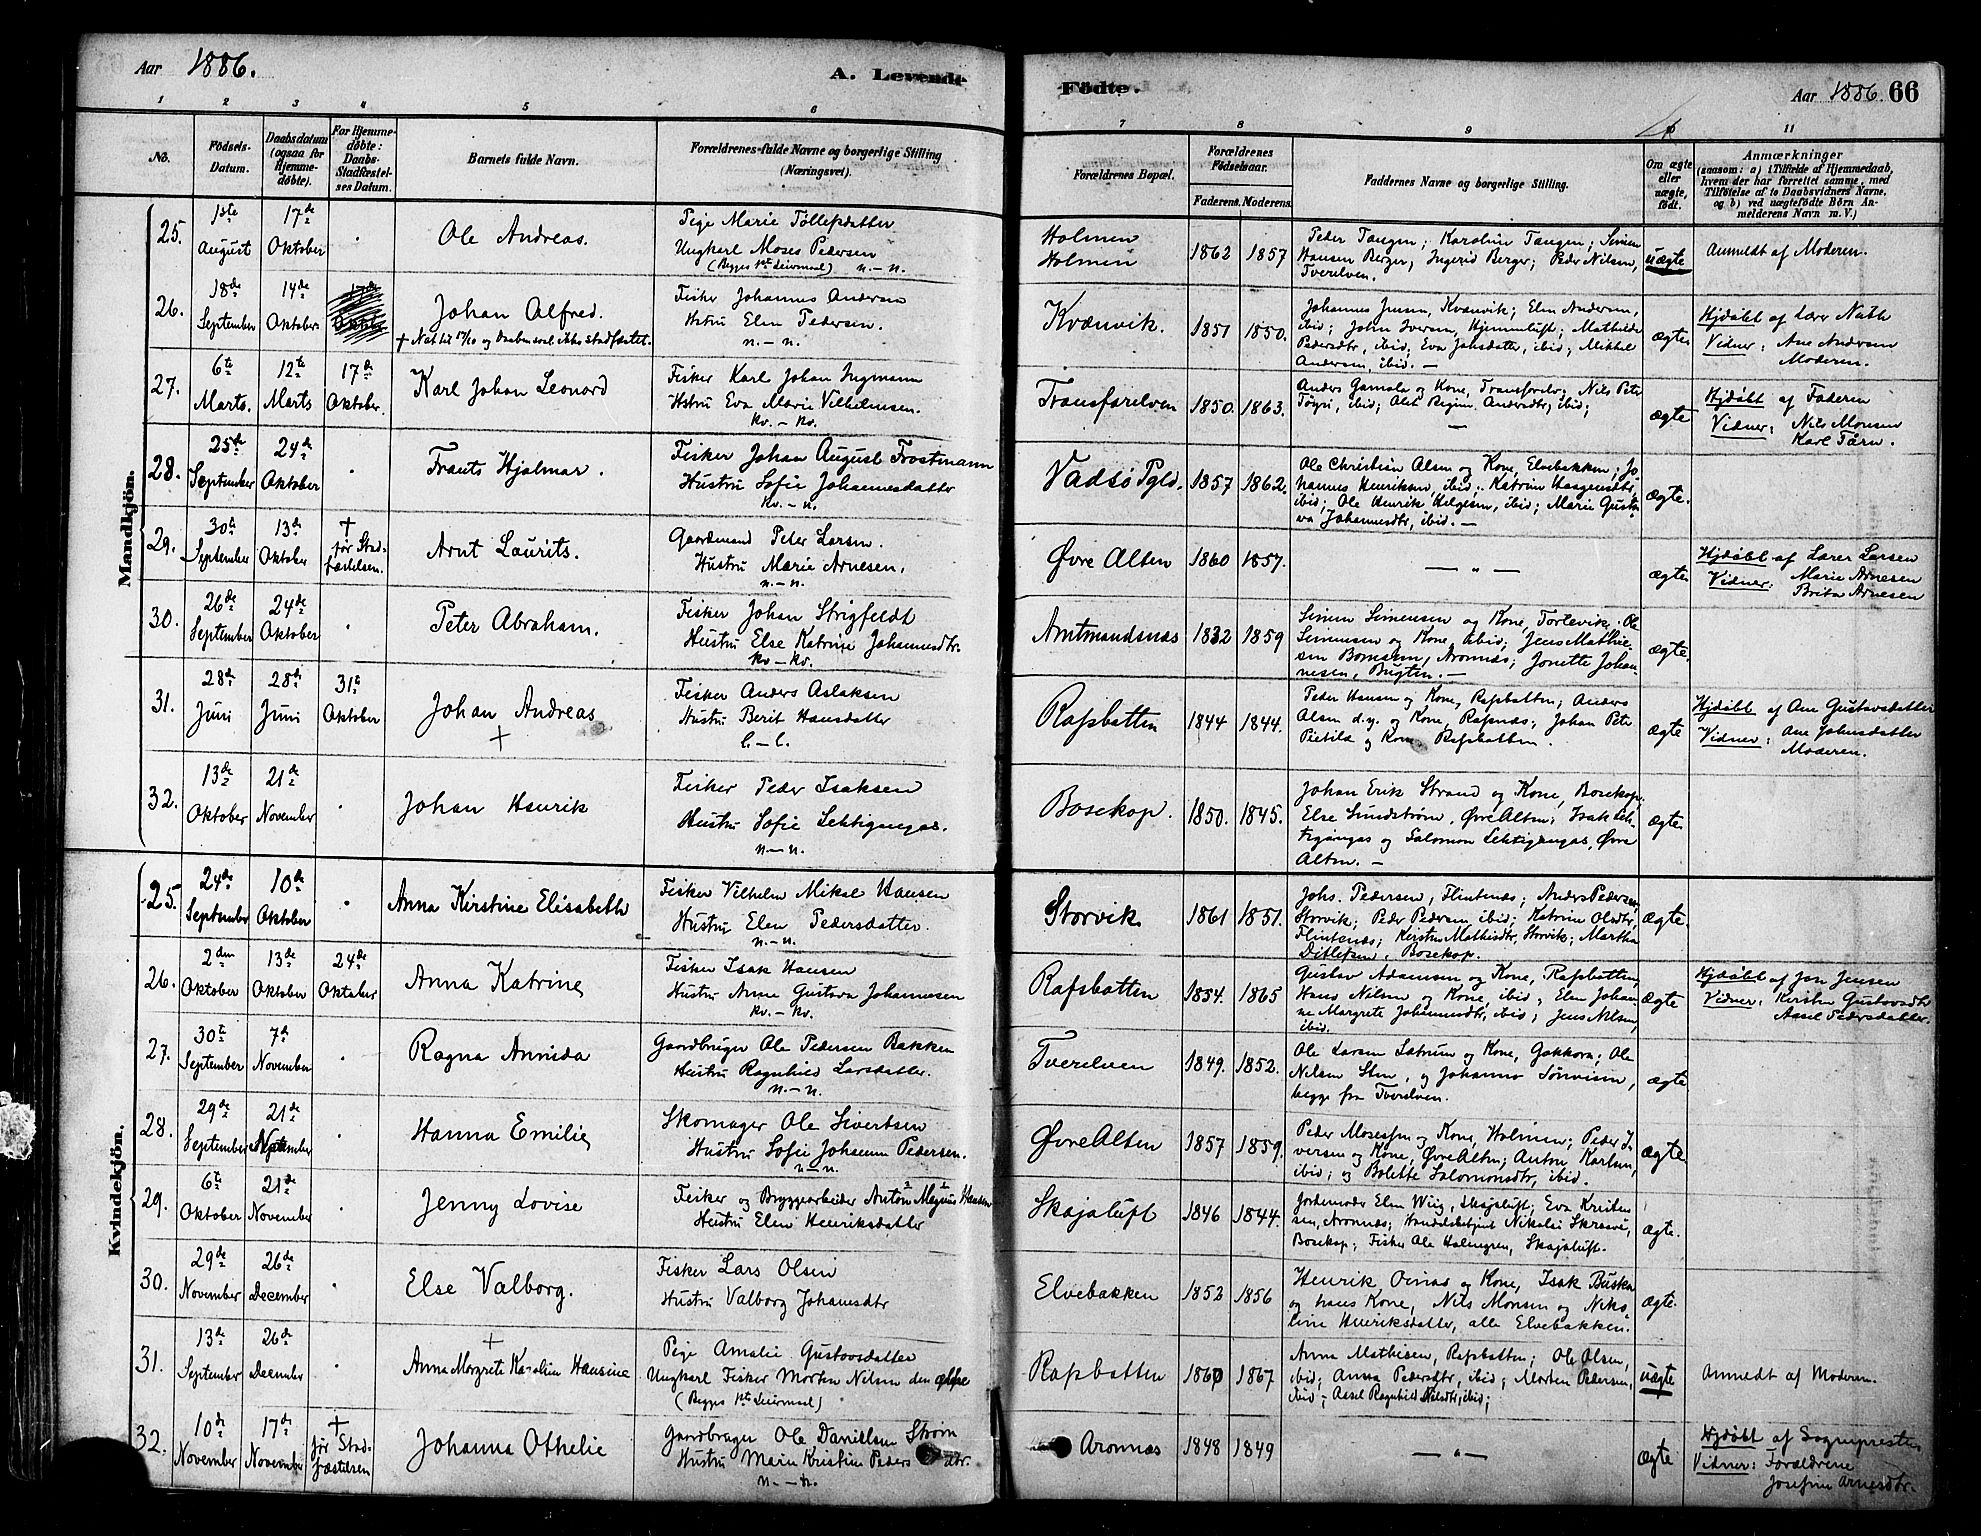 Aar 1886. A. Levende Födte. Aar 1886. 66
1 2 3 4 5 6 7 8 9 11
No.
Födsels-Datum.
Daabsdatum (ogsaa for Hjemmedøbte).
For Hjemmedøbte: Daabs-Stadfæstelses Datum.
Barnets fulde Navn.
Forældrenes fulde Navne og borgerlige Stilling (Næringsvei).
Forældrenes Bopæl.
Forældrenes Födselsaar.
Faderens. Moderens.
Faddernes Navne og borgerlige Stilling.
Om ægte eller uægte, födt.
Anmærkninger
(saasom: a) i Tilfælde af Hjemmedaab, hvem der har forrettet samme, med Tilföielse af to Daabsvidners Navne, og b) ved uægtefödte Börn Anmelderens Navn m. V.)
Mandkjön.
25. 1ste August 17de Oktober Ole Andreas.
Pige Marie Tøllefsdatter
Ungkarl Moses Pedersen
(Begges 1st Leiermaal) n. – n.
Holmen
Holmen
1862 1857
Peder Tangen; Karoline Tangen; Simen
Hansen Berger; Ingerid Berger; Peder Nilsen,
Tverelven.
uægte Anmeldt af Moderen.
26. 18de September 14de Oktober. Johan Alfred.
Fisker Johannes Andersen
Hstru Elen Pedersen.
n. – n.
Kvænvik. 1851 1850.
Johannes Jensen, Kvænvik; Elen Andersen,
ibid; John Iversen, Hjemmeluft; Mathilde
Pedersdtr, ibid; Eva Johsdatter, ibid; Mikkel
Andersen, ibid. –
ægte
Hjdøbt af Lærer Nath
Vidner: Ane Andersen
Moderen.
27. 6te Marts. 12te Marts 17de Oktober. Karl Johan Leonard
Fisker Karl Johan Ingmann
Hstru Eva Marie Vilhelmsen.
kv. – kv.
Transfarelven 1850. 1863.
ægte
Hjdøbt af Faderen
Vidner: Nils Monsen
Karl Törn.
28. 25de September 24de Oktober Frants Hjalmar.
Fisker Johan August Frostmann
Hustru Sofie Johannesdatter
kv. – n.
Vadsö Pgld. 1857 1862.
Ole Christian Olsen og Kone, Elvebakken; Jo
hannes Henriksen, ibid; Katrine Haagensdtr,
ibid; Ole Henrik Helgesen, ibid; Marie Gusta
va Johannesdtr, ibid. –
ægte.
29. 30te September 13de Oktober † før Stadfæstelsen. Arnt Laurits.
Gaardmand Peter Larsen.
Hustru Marie Arnesen,
n. – n.
Øvre Alten 1860 1857. — „ —
ægte
Hjdøbt af Lærer Larsen
Vidner: Marie Arnesen
Brita Arnesen
30. 26de September 24de Oktober Peter Abraham.
Fisker Johan Strigfeldt
Hustru Else Katrine Johannesdtr.
kv – kv.
Amtmandsnæs 1832 1859
Simen Simensen og Kone, Torlevik; Ole
Simensen og Kone, ibid; Jens Mathie
sen Bomstrøm, Aronnæs; Jonette Johan
nesen, Bugten. –
ægte.
31. 28de Juni 28de Juni 31te Oktober Johan Andreas
†
Fisker Anders Aslaksen
Hustru Berit Hansdatter
l. – l.
Rafsbotten 1844 1844.
Peder Hansen og Kone, Rafsbotten; Anders
Olsen d.y. og Kone, Rafsnæs; Johan Peter
Pietilä og Kone Rafsbotten.
ægte
Hjdøbt af Ane Gustavsdatter
Vidner: Ane Johnsdatter
Moderen.
32. 13de Oktober 21de November Johan Henrik
Fisker Peder Isaksen
Hustru Sofie Lehtigangas.
n. – n.
Bosekop. 1850. 1845.
Johan Erik Strand og Kone, Bosekop;
Else Sundström, Øvre Alten; Isak Leh
tigangas og Salomon Lehtigangas, Øvre
Alten. –
ægte.
Kvindekjön.
25. 24de September 10de Oktober Anna Kirstine Elisabeth
Fisker Vilhelm Mikal Hansen
Hustru Elen Pedersdatter.
n. – n.
Storvik 1861 1851.
Johs. Pedersen, Flintenæs; Anders Pedersen
Storvik; Peder Pedersen ibid; Katrine Olsdtr,
Flintenæs; Kirsten Mathisdtr, Storvik; Martha
Ditlefsen, Bosekop.
ægte.
26. 2den Oktober 13de Oktober 24de Oktober Anna Katrine
Fisker Isak Hansen
Hustru Anne Gustava Johannesen
kv. – kv.
Rafsbotten 1854. 1865
Gustav Adamsen og Kone, Rafsbotten,
Hans Nilsen og Kone, ibid; Elen Johan
ne Margrete Johannesdtr, ibid; Jens Nilsen,
ibid.
ægte
Hjdøbt af Jon Jensen
Vidner: Kirsten Gustavsdtr
Aasel Pedersdatter.
27. 30te September 7de November Ragna Annida
Gaardbruger Ole Pedersen Bakken
Hustru Ragnhild Larsdatter.
n. – n.
Tverelven 1849. 1852.
Ole Larsen Sætrum og Kone, Gakkora; Ole
Nilsen Sten, og Johanne Tønvisen,
begge fra Tverelven.
ægte
28. 29de September 21de November Hanna Emilie
Skomager Ole Sivertsen
Hustru Sofie Johanne Pedersen.
n. – n.
Øvre Alten 1857 1859.
Peder Mosessen og Kone, Holmen; Peder I
versen og Kone, Øvre Alten; Anton Karlsen,
ibid; og Bolette Salomonsdtr, ibid.
ægte.
29. 6te Oktober 21de November Jenny Lovise
Fisker og Bryggearbeider Anton Magnus Hansen
Hustru Elen Henriksdatter
Skajaluft 1846 1844.
Jordemoder Elen Wiig, Skajaluft; Eva Kristen
sen, Aronnæs; Handelsbetjent Nikolai Skrøvø,
Bosekop; Fisker Ole Holmgren, Skajaluft.
ægte.
30. 29de November 26de December Else Valborg.
Fisker Lars Olsen
Hustru Valborg Johansdtr
Elvebakken 1852 1856
Henrik Oinas og Kone, Isak Buska
og hans Kone, Nils Monsen og Niko
line Henriksdatter, alle Elvebakken.
ægte.
31. 13de September 26de December †
Anna Margrete Karoline Hansine
Pige Amalie Gustavsdatter
Ungkarl Fisker Morten Nilsen den
(Begges 1ste Leiermaal)
Rafsbotten 1860 1867
Anna Mathisen, Rafsbotten; Ole Olsen,
ibid; Anna Pedersdtr, ibid; Morten Pedersen,
ibid – Aasel Ragnhild Nilsdtr, ibid;
uægte Anmeldt af Moderen.
32. 10de November 17de November † før Stadfæstelsen Johanna Othelie
Gaardbruger Ole Danielsen Strøm
Hustru Marie Kristine Pedersdtr.
n. – n.
Aronnæs 1848 1849 — „ —
ægte
Hjdøbt af Sognepresten
Vidner: Forældrene
Josefine Arnesdtr.